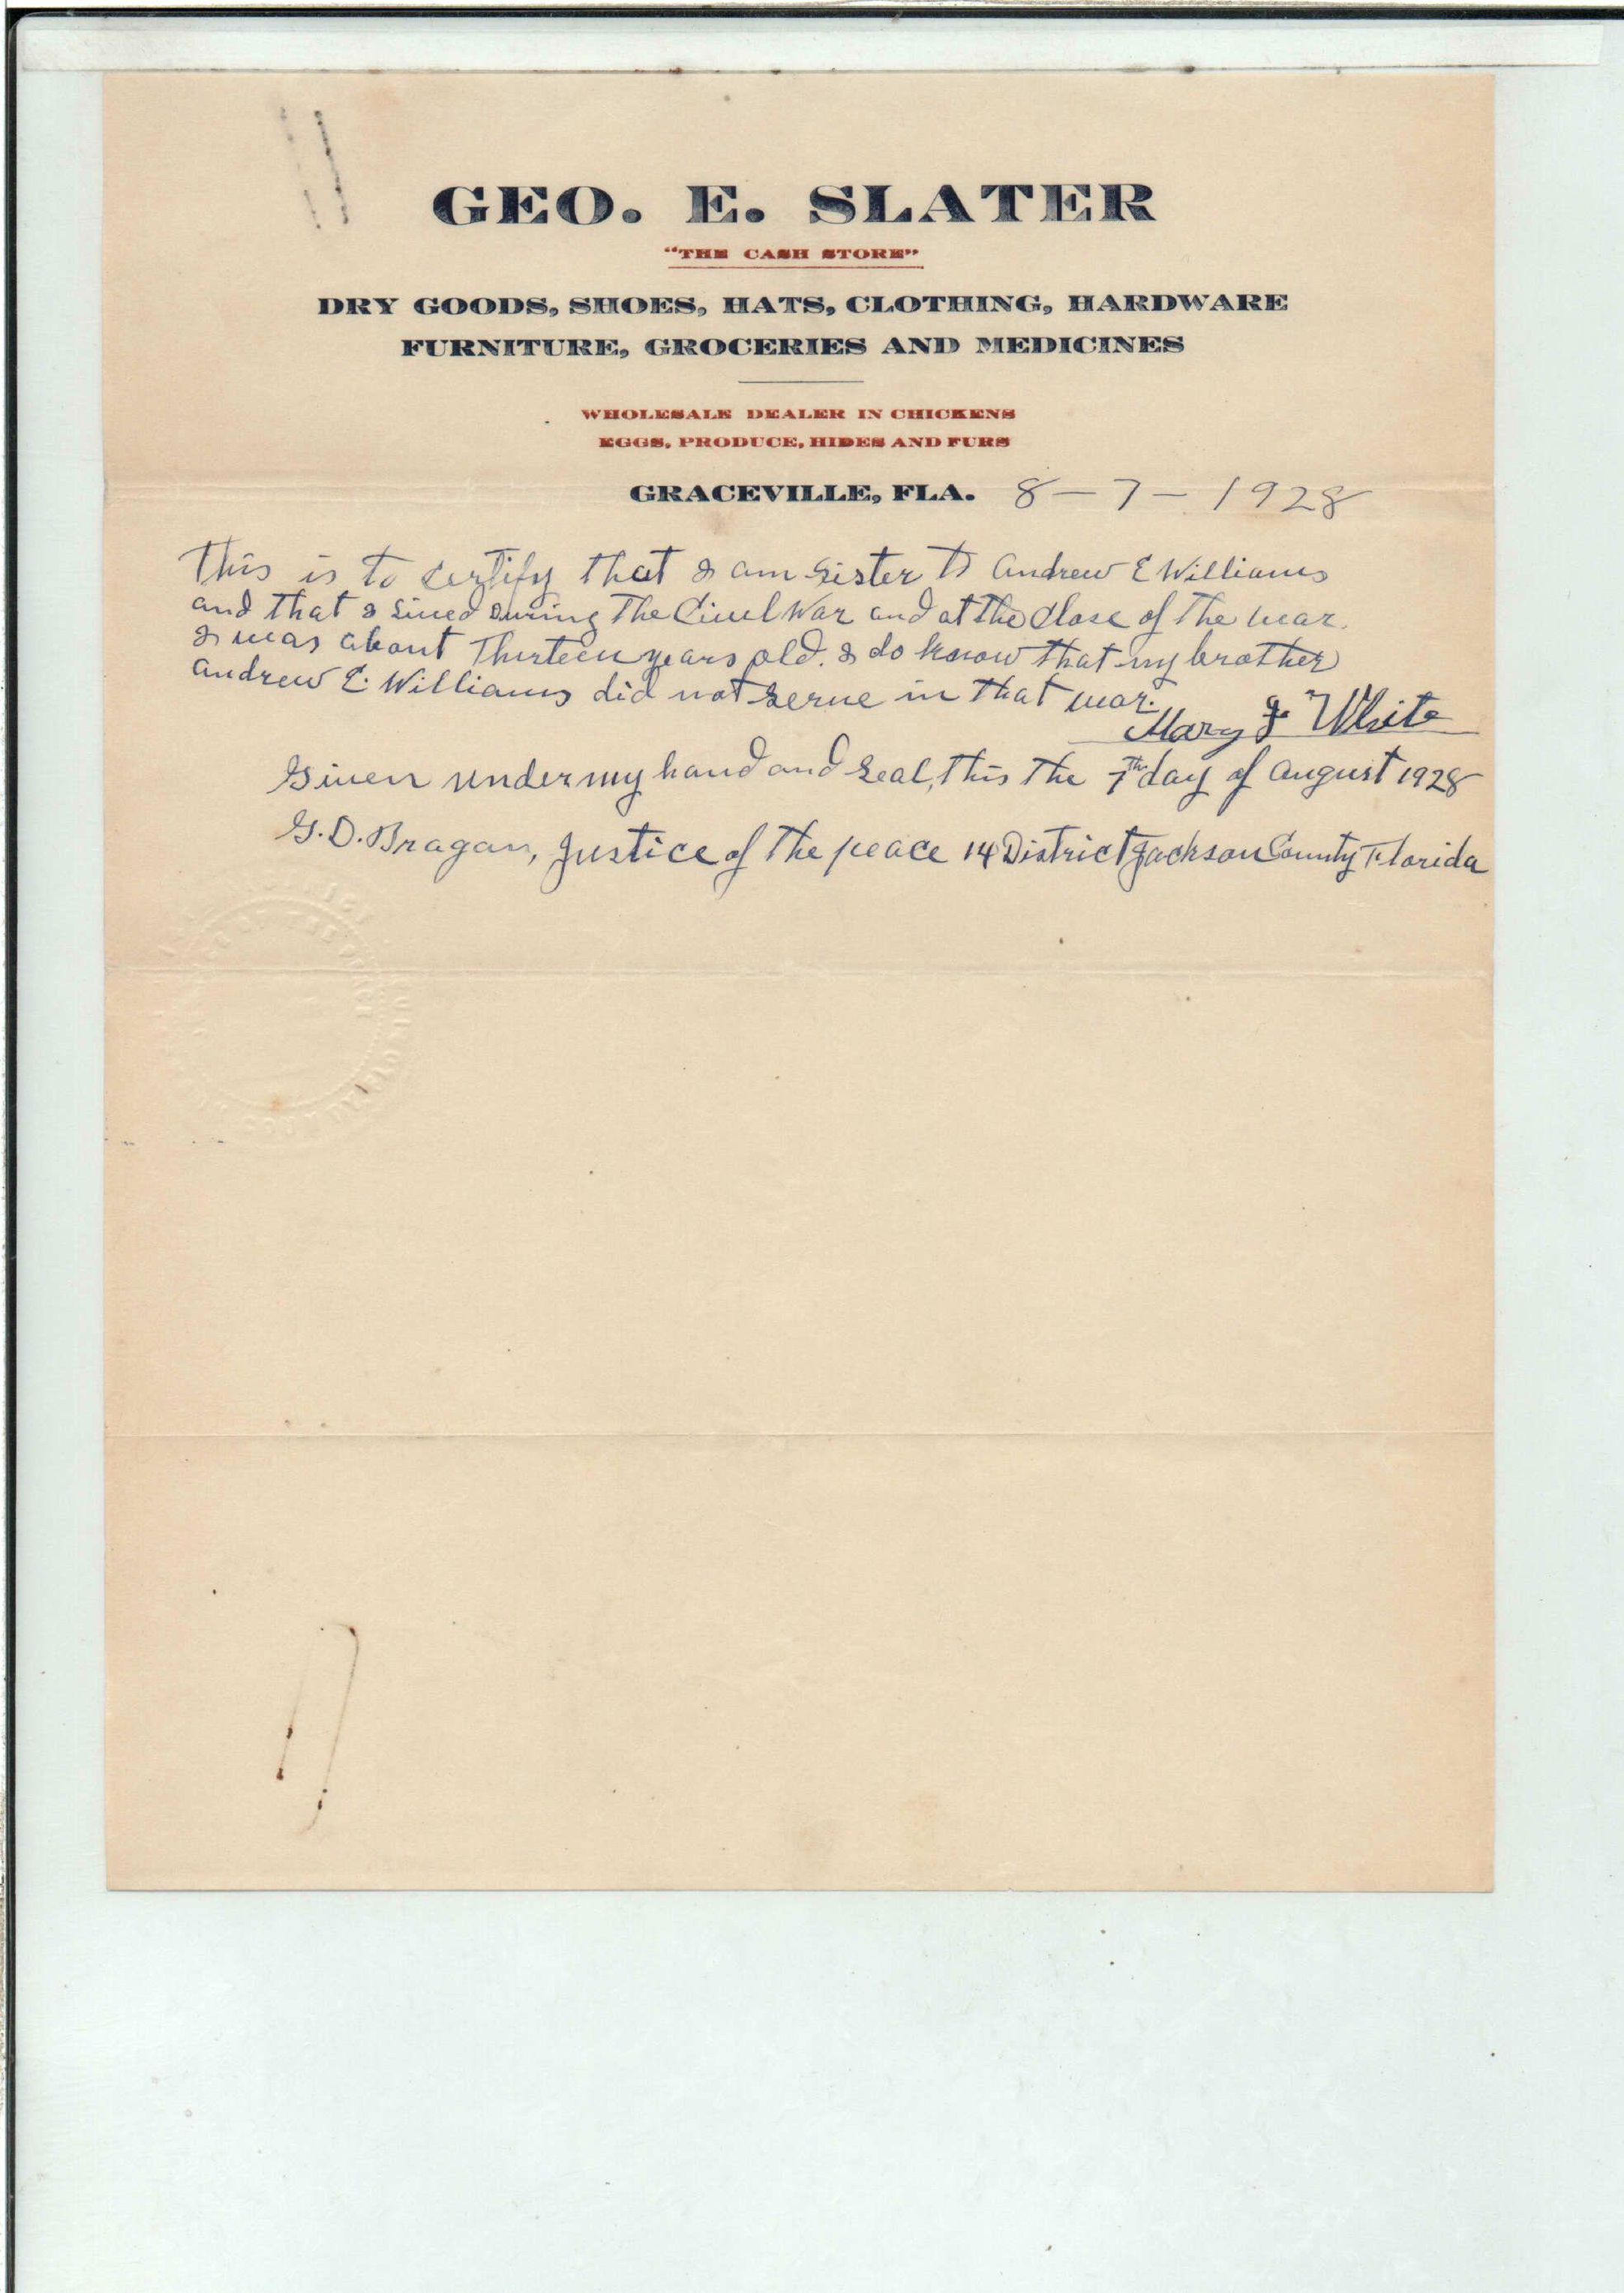 GEO. E. SLATER
"THE CASH STORE"
DRY GOODS, SHOES, HATS, CLOTHING, HARDWARE
FURNITURE, GROCERIES AND MEDICINES
WHOLESALE DEALER IN CHICKENS
EGGS, PRODUCE, HIDES AND FURS
GRACEVILLE, FLA. 8-7-1928
This is to certify that I am sister to Andrew E Williams
and that I lived during the Civil War and at the close of the war.
I was about Thirteen years old. I do know that my brother
Andrew E. Williams did not serve in that war.
Mary J White
Given under my hand and seal, this the 7th day of August 1928
G. D. Bragan, Justice of the peace 14 District Jackson County Florida